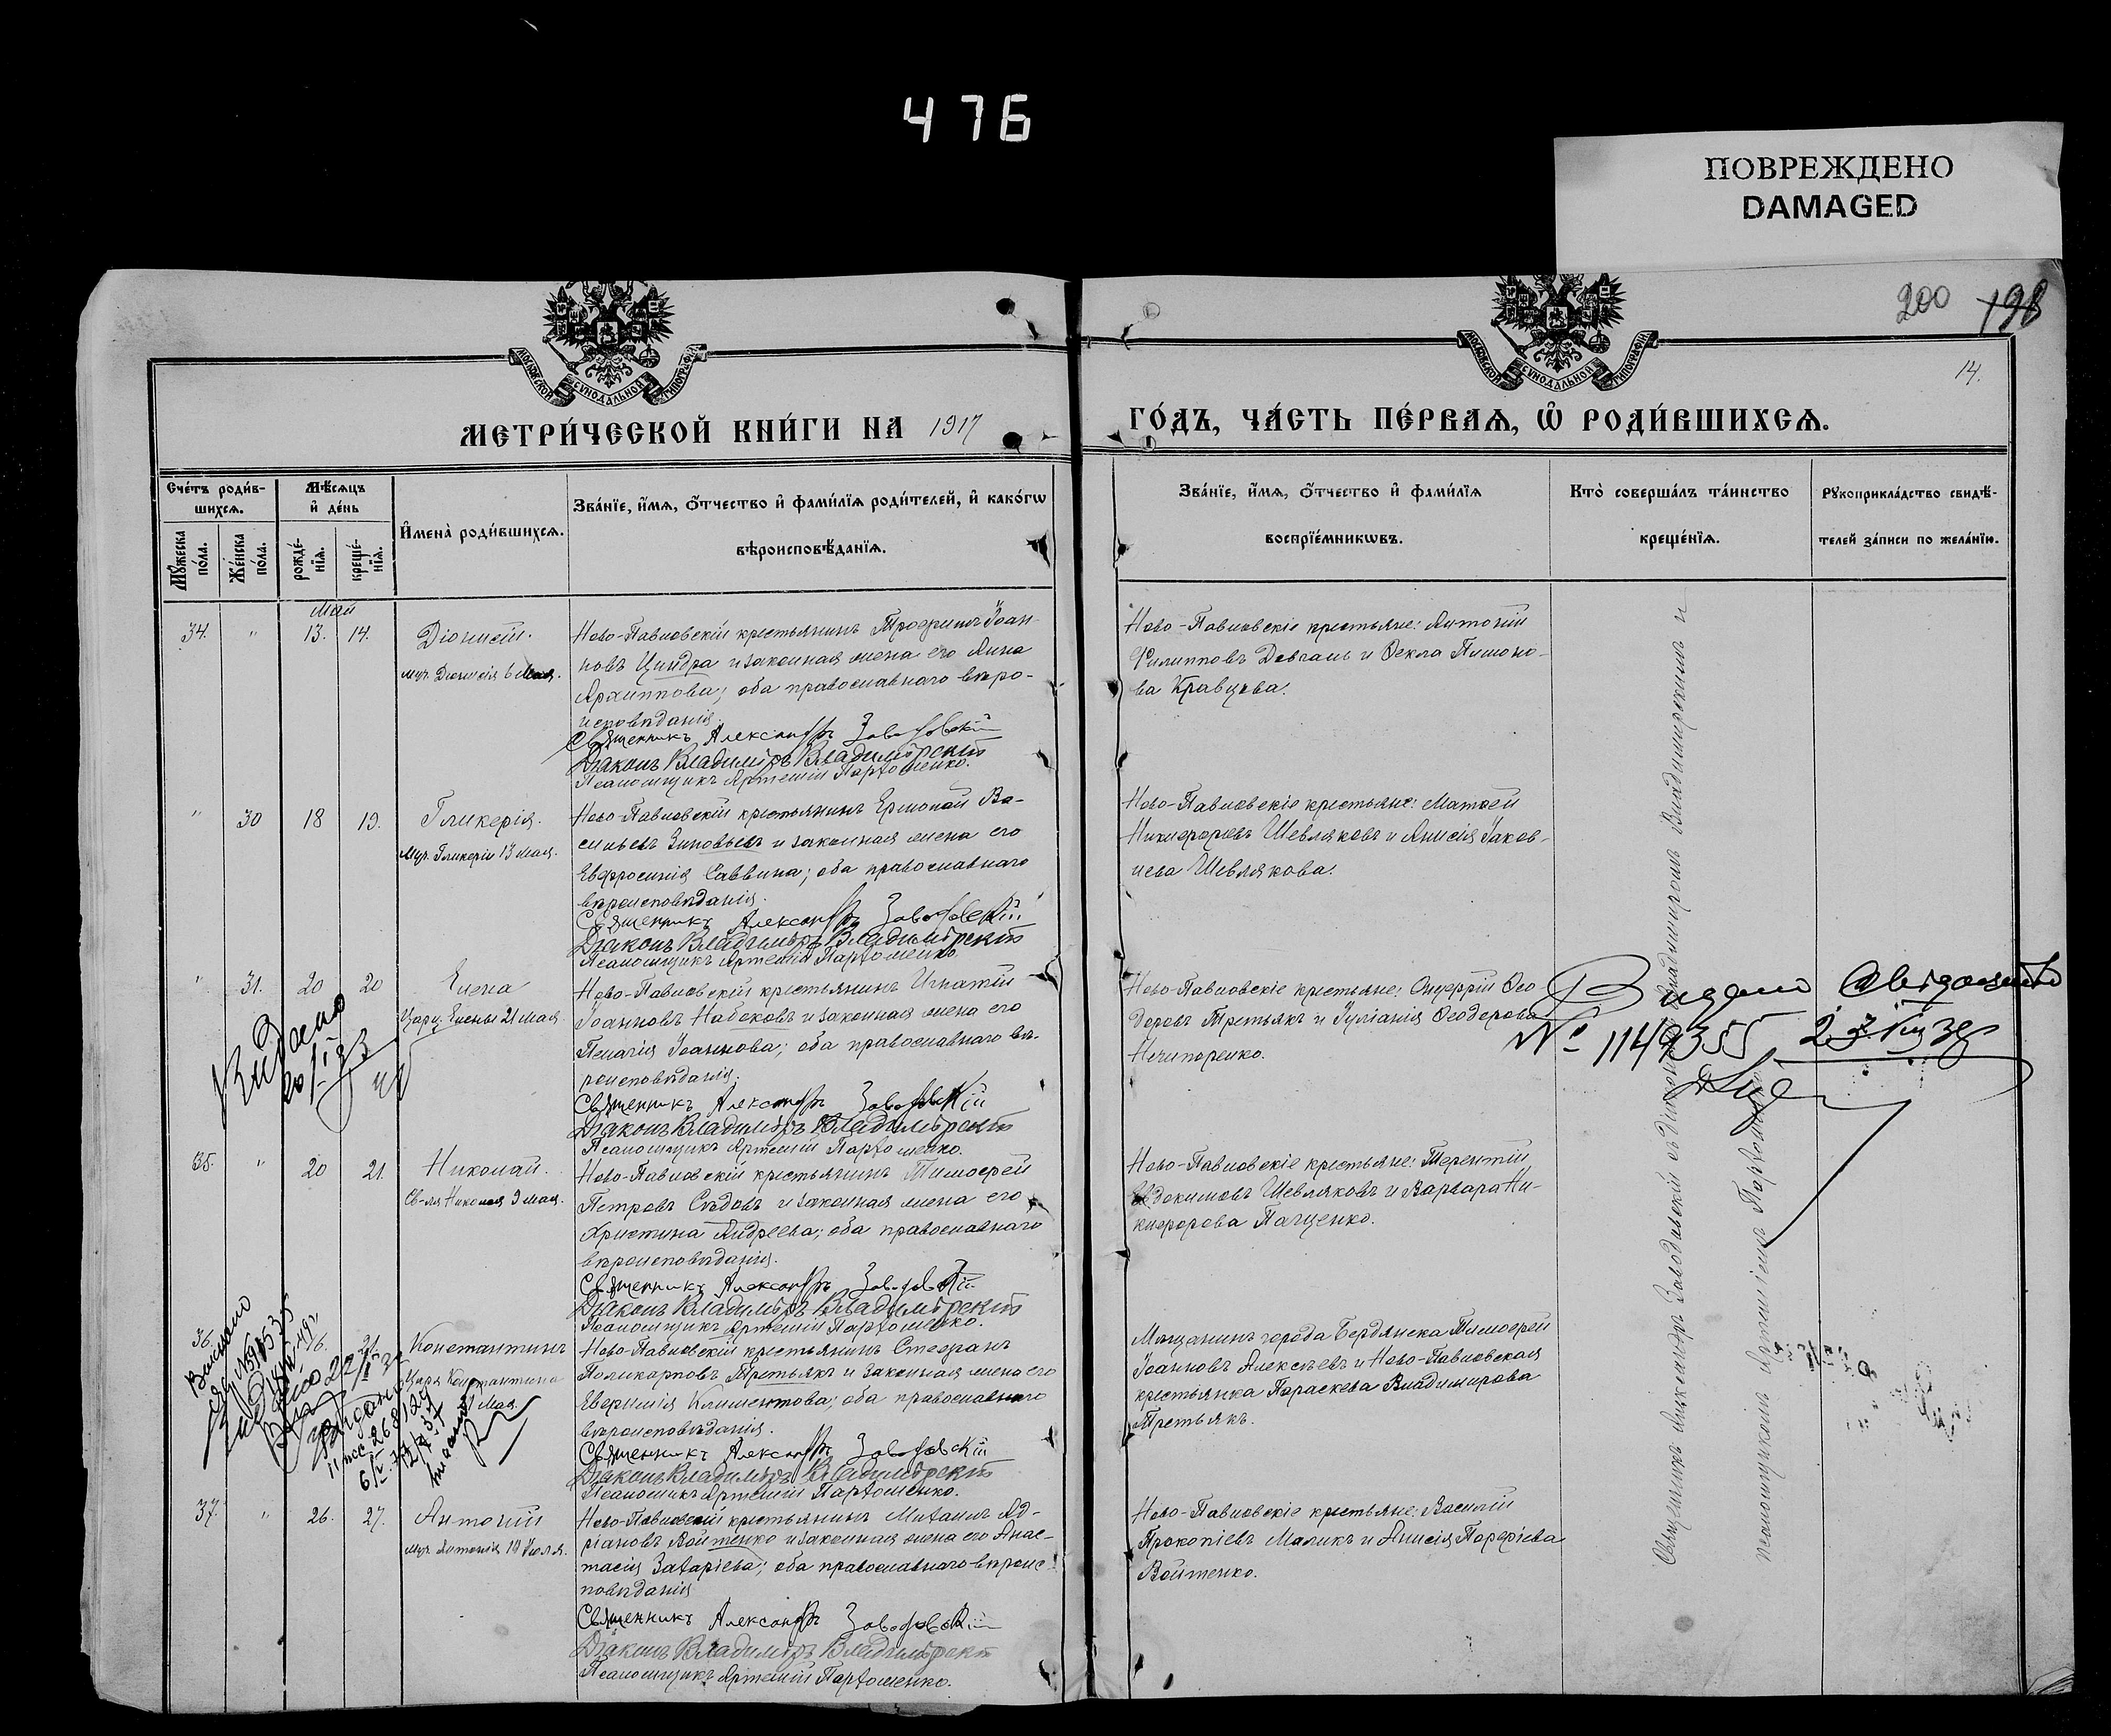 476
ПОВРЕЖДЕНО
DAMAGED
200 198
14.
МОСКОВСКОЙ СѴНОДАЛЬНОЙ ТИПОГРАФІИ
МОСКОВСКОЙ СѴНОДАЛЬНОЙ ТИПОГРАФІИ
МЕТРИ́ЧЕСКОЙ КНИ́ГИ НА 1917
ГО́ДЪ, ЧА́СТЬ ПЕ́РВАѦ, Ѽ РОДИ́ВШИХСѦ.
Сче́тъ роди́в-
шихсѧ.
Мꙋ́жеска по́ла.
Же́нска по́ла.
Мѣ́сѧцъ
и҆ де́нь
рожде́-
нїѧ.
креще́-
нїѧ.
И҆мена̀ роди́вшихсѧ.
Зва́нїе, и҆́мѧ, ѻ҆́тчество и҆ фами́лїѧ роди́телей, и҆ како́гѡ
вѣроисповѣ́данїѧ.
Зва́нїе, и҆́мѧ, ѻ҆́тчество и҆ фами́лїѧ
воспрїе́мникѡвъ.
Кто̀ соверша́лъ та́инство
креще́нїѧ.
Рꙋкоприкла́дство свидѣ́-
телей за́писи по жела́нїю.
Май
34. " 13. 14. Діонисій.
муч. Діонисія 6 Мая.
Ново-Павловскій крестьянинъ Трофимъ Іоан-
новъ Циндра и законная жена его Анна
Архиппова; оба православнаго вѣро-
исповѣданія.
Священникъ Александръ Заводовскій
Діаконъ Владиміръ Владимірскій
Псаломщикъ Артемій Пархоменко.
Ново-Павловскіе крестьяне: Антоній
Филипповъ Довгань и Ѳекла
ва Кравцова.
" 30 18 19. Гликерія.
Муч. Гликеріи 13 мая.
Ново-Павловскій крестьянинъ Ермолай Ва-
сильевъ Зиновьевъ и законная жена его
Евфросинія Саввина; оба православнаго
вѣроисповѣданія.
Священникъ Александръ Заводовскій
Діаконъ Владиміръ Владимірскій
Псаломщикъ Артемій Пархоменко.
Ново-Павловскіе крестьяне: Матѳей
Никифоровъ Шевляковъ и Анисія Іаков-
лева Шевлякова.
" 31. 20 20 Елена
Цариц. Елены 21 мая.
Ново-Павловскій крестьянинъ Игнатій
Іоанновъ Набоковъ и законная жена его
Пелагія Іоаннова; оба православнаго вѣ-
роисповѣданія.
Священникъ Александръ Заводовскій
Діаконъ Владиміръ Владимірскій
Псаломщикъ Артемій Пархоменко.
Ново-Павловскіе крестьяне: Онуфрій Ѳео
доровъ Третьякъ и Іуліанія Ѳеодорова
Нечипоренко.
Видано
№ 1149355
Видано
35. " 20 21. Николай.
Св-ля Николая 9 мая.
Ново-Павловскій крестьянинъ Тимоѳей
Петровъ Сѣдовъ и законная жена его
Христина Андреева; оба православнаго
вѣроисповѣданія.
Священникъ Александръ Заводовскій
Діаконъ Владиміръ Владимірскій
Псаломщикъ Артемій Пархоменко.
Ново-Павловскіе крестьяне: Терентій
Евдокимовъ Шевляковъ и Варвара Ни-
кифорова Пащенко.
36. 21. Константинъ
Царя Константина
Мая.
Ново-Павловскій крестьянинъ Стефанъ
Поликарповъ Третьякъ и законная жена его
Евфимія Климентова; оба православнаго
вѣроисповѣданія.
Священникъ Александръ Заводовскій
Діаконъ Владиміръ Владимірскій
Псаломщикъ Артемій Пархоменко.
Мѣщанинъ города Бердянска Тимоѳей
Іоанновъ Алексѣевъ и Ново-Павловская
крестьянка Параскева Владимирова
Третьякъ.
37. " 26. 27. Антоній
муч. Антонія 10 Іюля.
Ново-Павловскій крестьянинъ Михаилъ Ад-
ріановъ Войтенко и законная жена его Анас-
тасія Захаріева; оба православнаго вѣроис-
повѣданія
Священникъ Александръ Заводовскій
Діаконъ Владиміръ Владимірскій
Псаломщикъ Артемій Пархоменко.
Ново-Павловскіе крестьяне: Василій
Прокопіевъ Маликъ и Анисія Порфиріева
Войтенко.
Священникъ Александръ Заводовскій съ діакономъ Владимиромъ Владимирскимъ и
псаломщикомъ Артеміемъ Пархоменко.